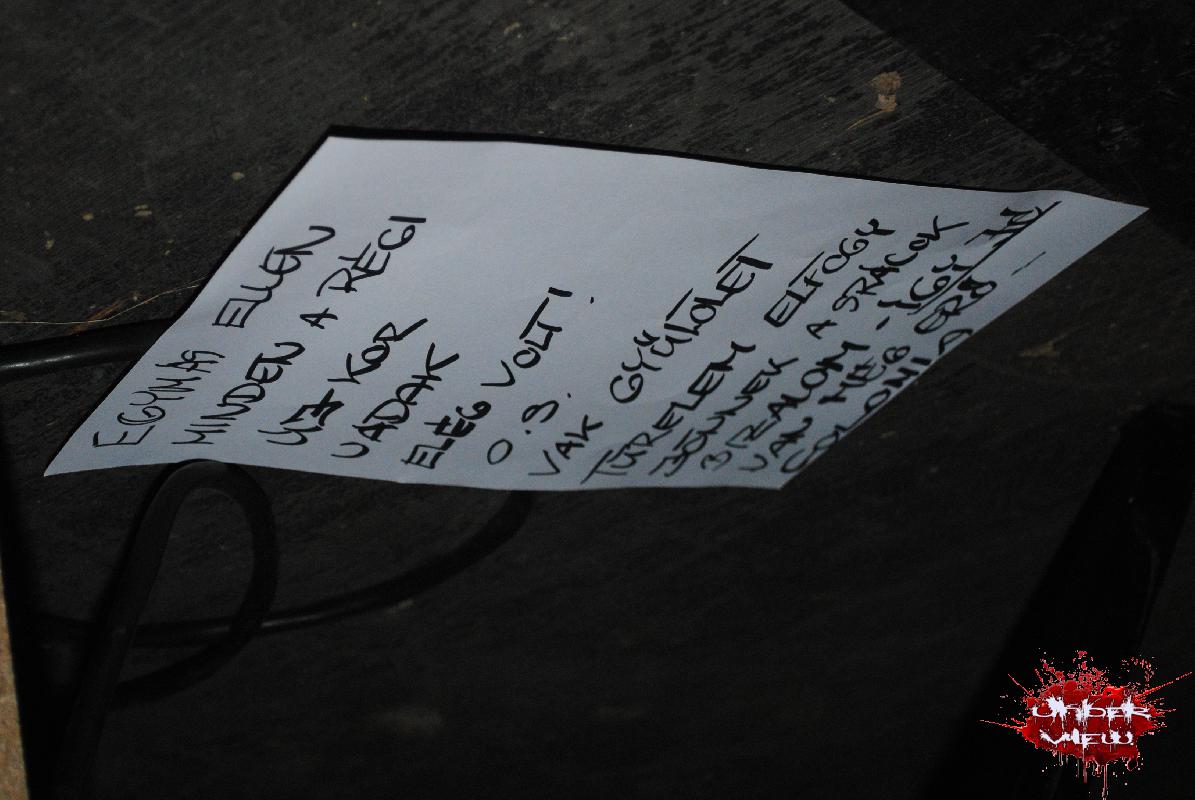 EGYMÁS ELLEN
MINDEN A RÉGI
ÚJ KOR
VADAK
ELÉG VOLT!
O.g.
VAK GYŰLÖLET
TÜRELEM ELFOGY
JÖNNEK A SRÁCOK
BIZALOM
VAN MÉG - ÍGY JÓ
COLONIA
UNDER
VIEW